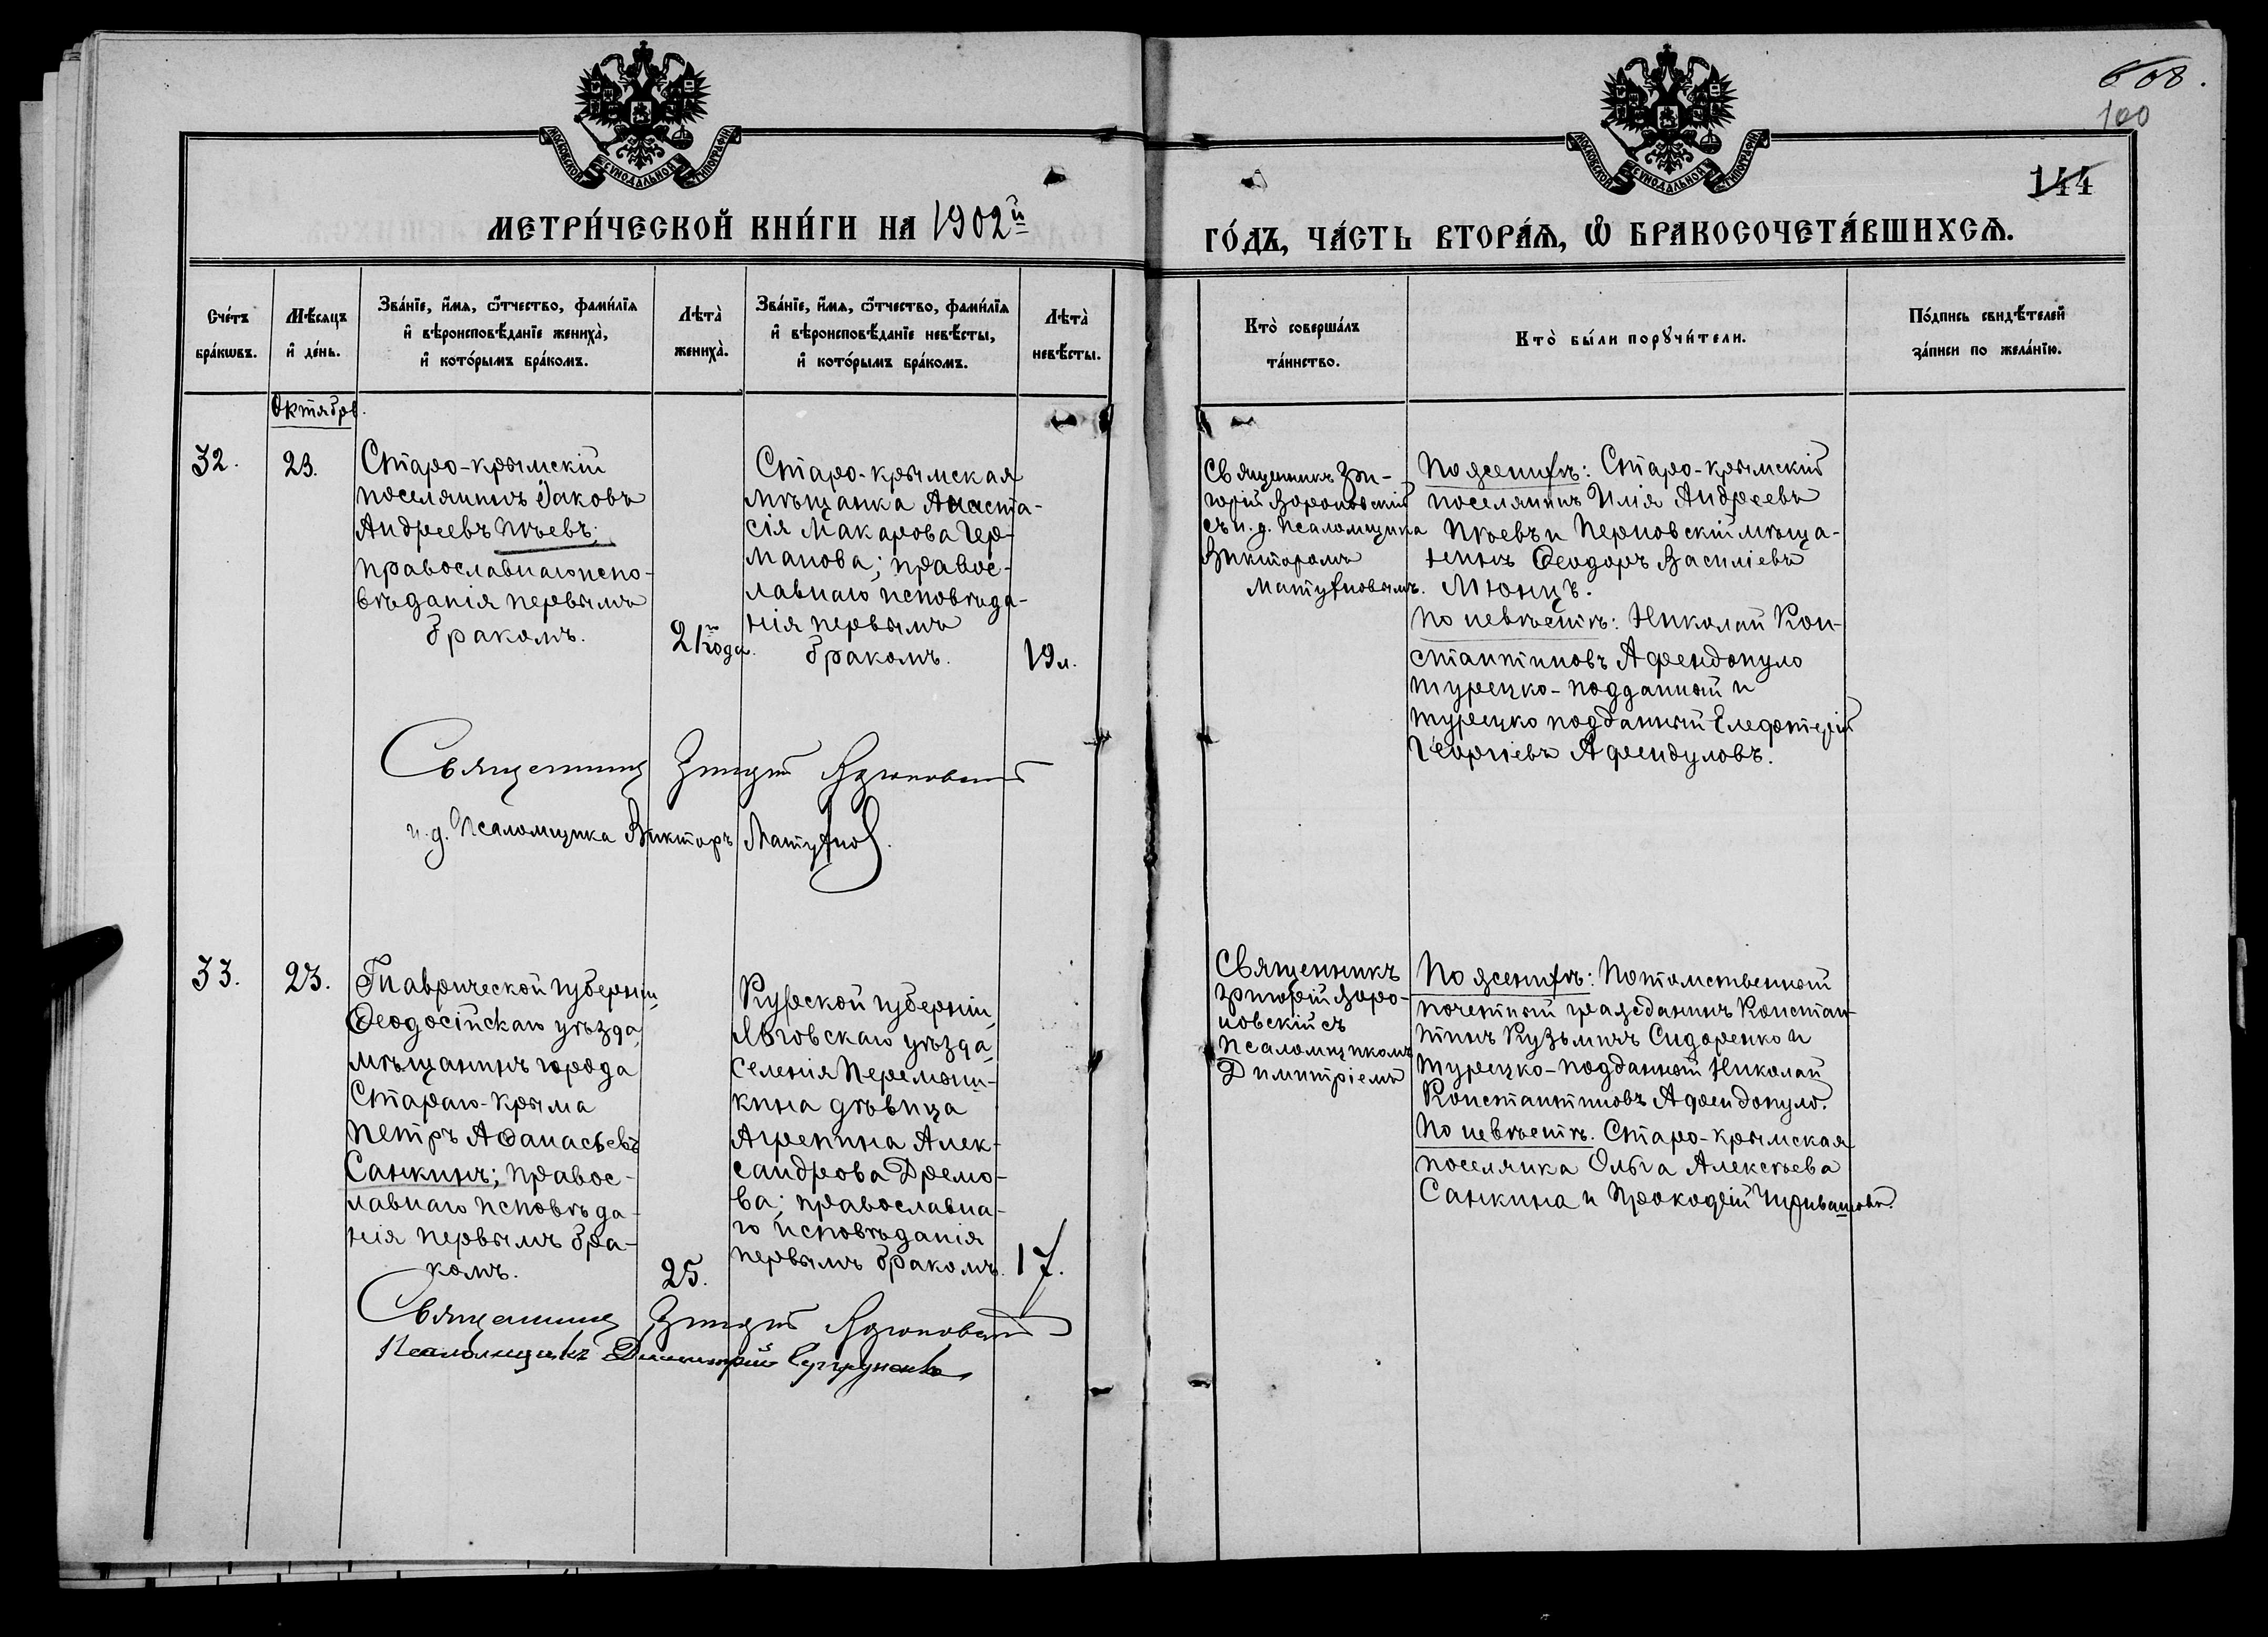 608.
100
144
МОСКОВСКОЙ СѴНОДАЛЬНОЙ ТИПОГРАФІИ
МОСКОВСКОЙ СѴНОДАЛЬНОЙ ТИПОГРАФІИ
МЕТРИ́ЧЕСКОЙ КНИ́ГИ НА 1902й
ГО́ДЪ, ЧА́СТЬ ВТОРА́Ѧ, Ѽ БРАКОСОЧЕТА́ВШИХСѦ.
Сче́тъ
бра́кѡвъ.
Мѣ́сяцъ
и҆ де́нь.
Зва́нїе, и҆́мѧ, ѻ҆́тчество, фами́лїѧ
и҆ вѣроисповѣ́данїе жениха̀,
и҆ кото́рымъ бра́комъ.
Лѣта̀
жениха̀.
Зва́нїе, и҆́мѧ, ѻ҆́тчество, фами́лїѧ
и҆ вѣроисповѣ́данїе невѣ́сты,
и҆ кото́рымъ бра́комъ.
Лѣта̀
невѣ́сты.
Кто̀ соверша́лъ
та́инство.
Кто̀ бы́ли порꙋчи́тели.
По́дпись свидѣ́телей
за́писи по жела́нїю.
Октябрь.
32.
23.
Старо-крымскій
поселянинъ Іаковъ
Андреевъ Пѣевъ;
православнаго испо-
вѣданія первымъ
бракомъ.
21 года.
Старо-крымская
мѣщанка Анаста-
сія Макарова Гер-
манова; правос-
лавнаго исповѣда-
нія первымъ
бракомъ.
19 л.
Священникъ Гри-
горій
съ и. д. псаломщика
Викторомъ
По женихѣ: Старо-крымскій
поселянинъ Илія Андреевъ
Пѣевъ и Перновскій мѣща-
нинъ Ѳеодоръ Василіевъ
Мюнцъ.
По невѣстѣ: Николай Кон-
стантиновъ Афендопуло
турецко-подданный и
турецко подданный Елефтерій
Георгіевъ Афендуловъ.
Священникъ Григорій
и. д. Псаломщика Викторъ
33.
23.
Таврической губерніи,
Ѳеодосійскаго уѣзда,
мѣщанинъ города
Стараго-Крыма
Петръ Аѳанасьевъ
Санкинъ; правос-
лавнаго исповѣда-
нія первымъ бра-
комъ.
25.
Курской губерніи,
Льговскаго уѣзда,
селенія
дѣвица
Агрепина Алек-
сандрова Дремо-
ва; православна-
го исповѣданія
первымъ бракомъ.
17.
Священникъ
Григорій
съ
псаломщикомъ
Димитріемъ
По женихѣ: Потомственный
почетный гражданинъ Констан-
тинъ Кузьмичъ Сидоренко и
турецко-подданный Николай
Константиновъ Афендопуло.
По невѣстѣ. Старо-крымская
поселянка Ольга Алексѣева
Санкина и Прокофій
Священникъ Григорій
Псаломщикъ Димитрій